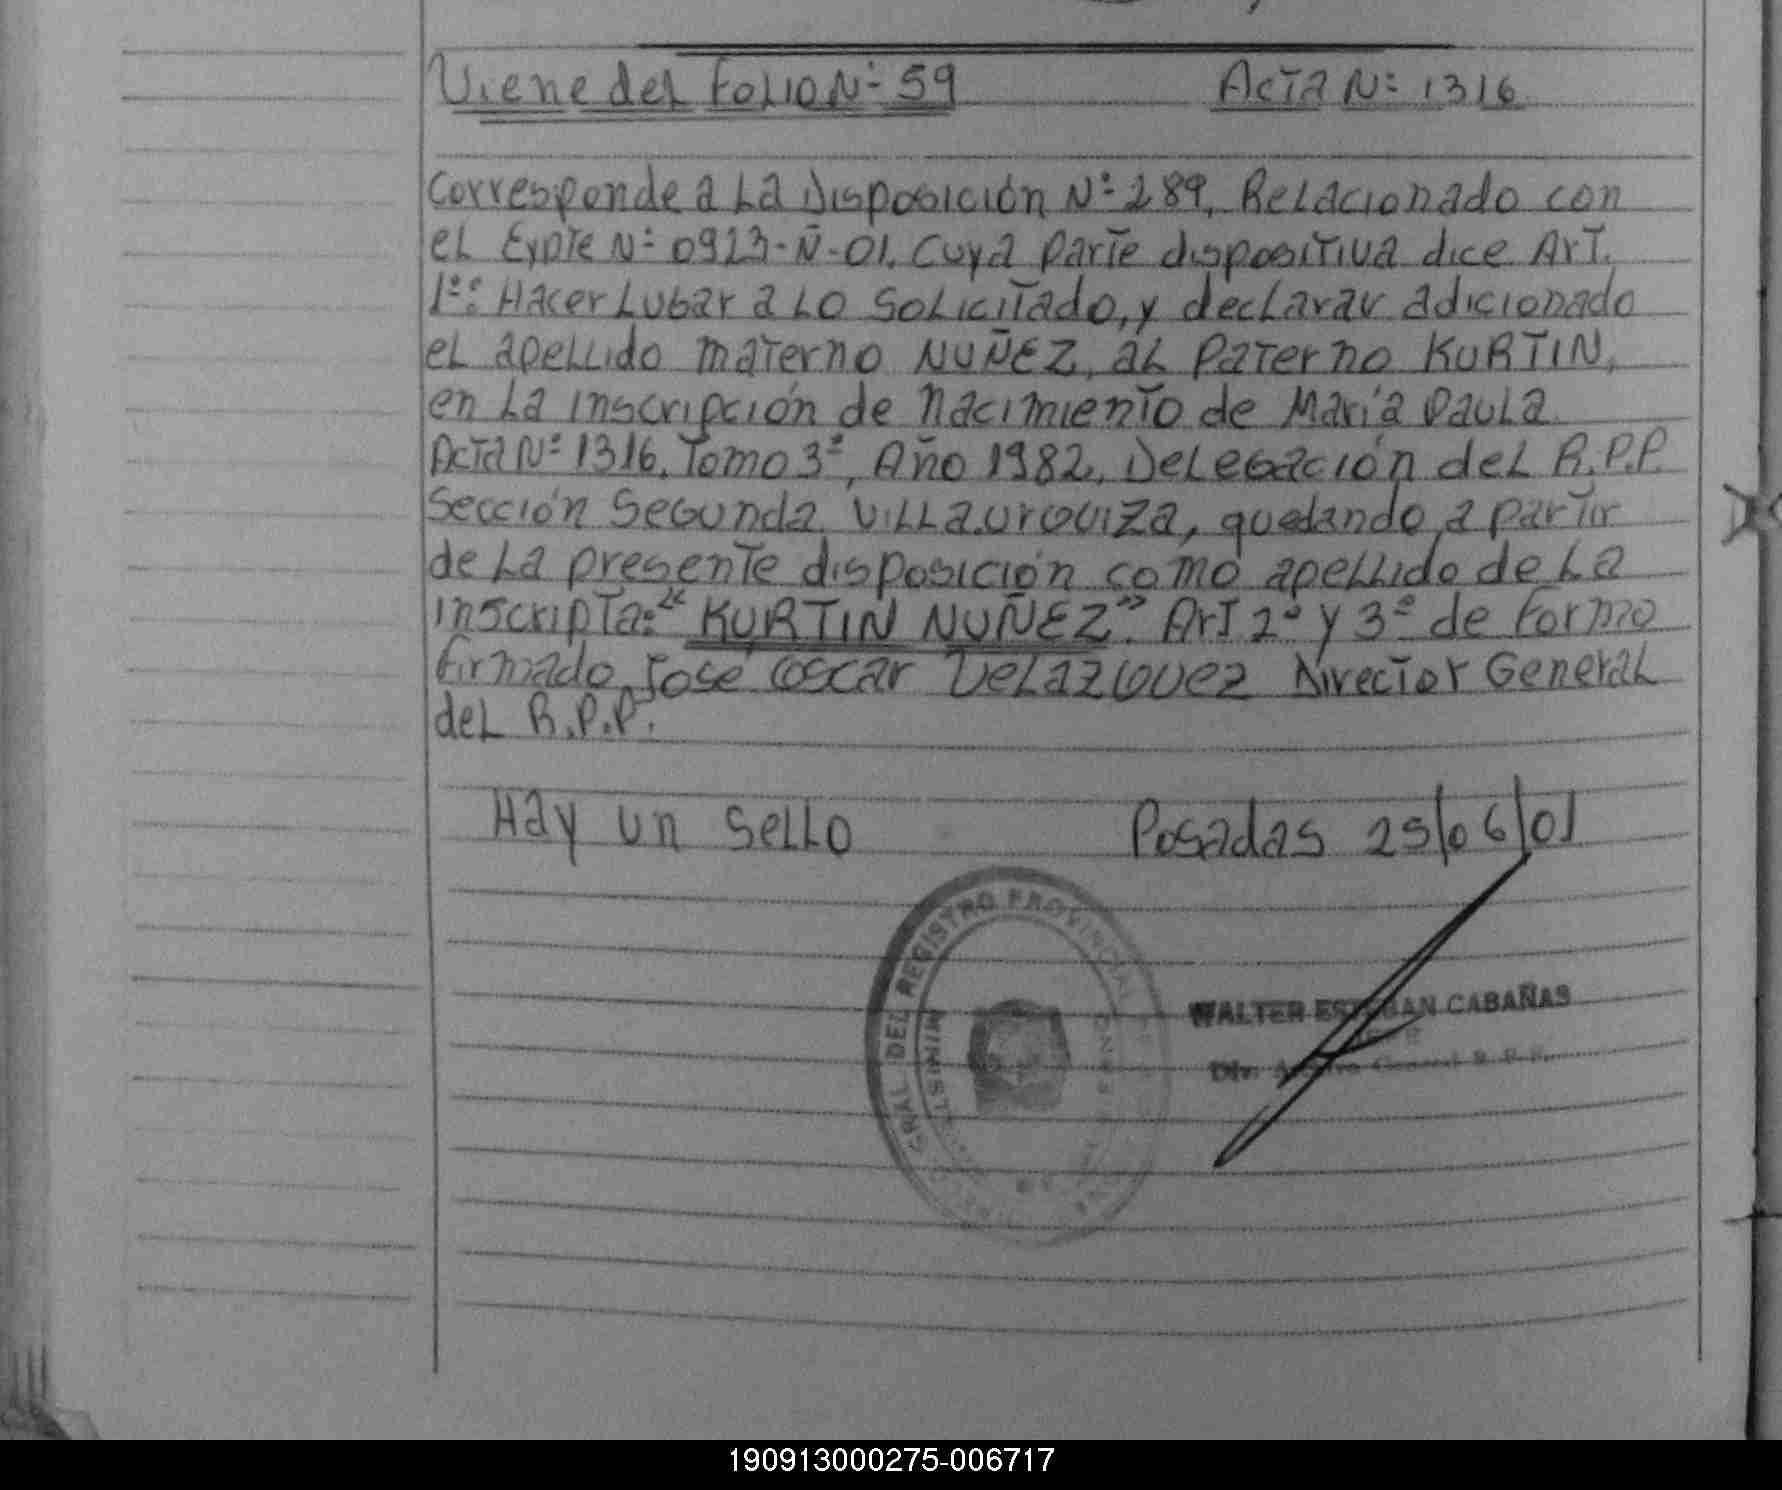 Viene del Folio Nº 59 Acta Nº 1316
Corresponde a La Disposición Nº 289, Relacionado con
el Expte Nº 0923-Ñ-01. Cuya parte dispositiva dice Art.
1º: Hacer Lugar a Lo Solicitado, y declarar adicionado
el apellido materno NUÑEZ, al paterno KURTIN,
en La inscripción de nacimiento de María Paula
Acta Nº 1316, Tomo 3º, Año 1982, Delegación del R.P.P.
Sección Segunda Villa Urquiza, quedando a partir
de La presente disposición como apellido de La
inscripta: "KURTIN NUÑEZ". Art 2º y 3º de Formo
firmado José Oscar Velazquez Director General
del R.P.P.
Hay un Sello Posadas 25/06/01
GRAL DEL REGISTRO PROVINCIAL
WALTER ESTEBAN CABAÑAS
Div.
190913000275-006717